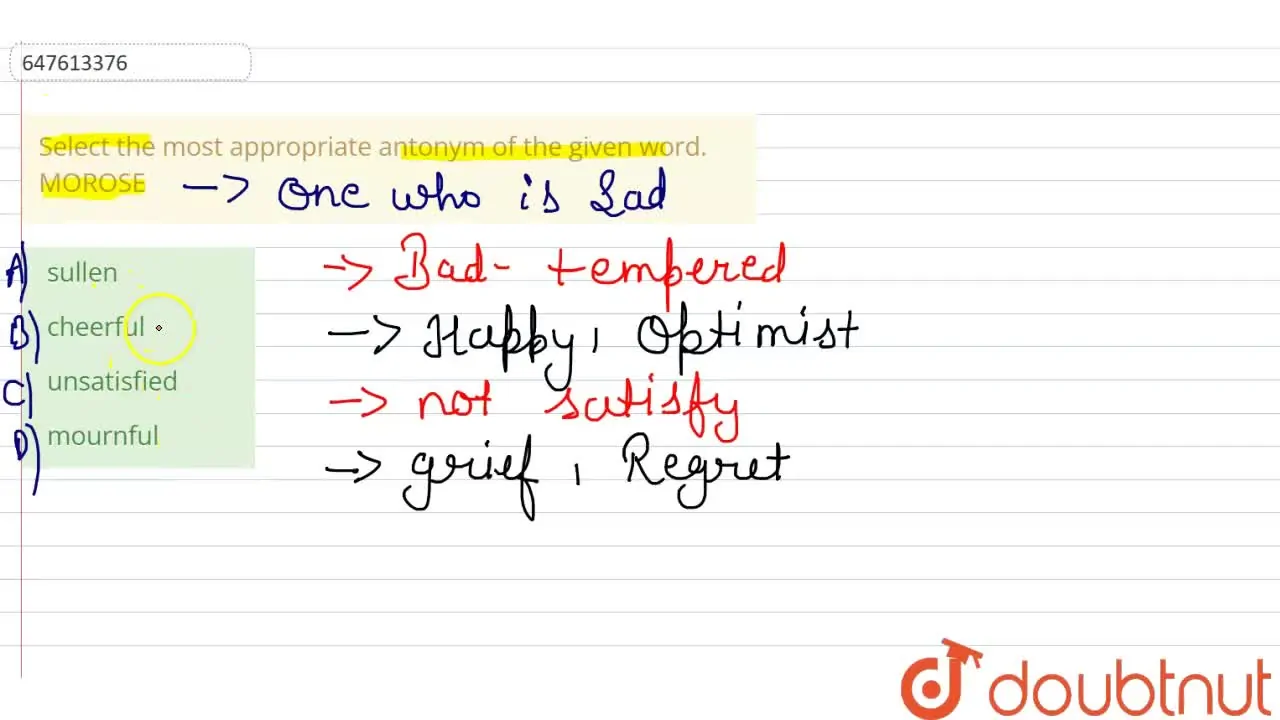 647613376
Select the most appropriate antonym of the given word.
MOROSE -> One who is Sad
A) sullen -> Bad- tempered
B) cheerful -> Happy, Optimist
C) unsatisfied -> not satisfy
D) mournful -> grief, Regret
doubtnut